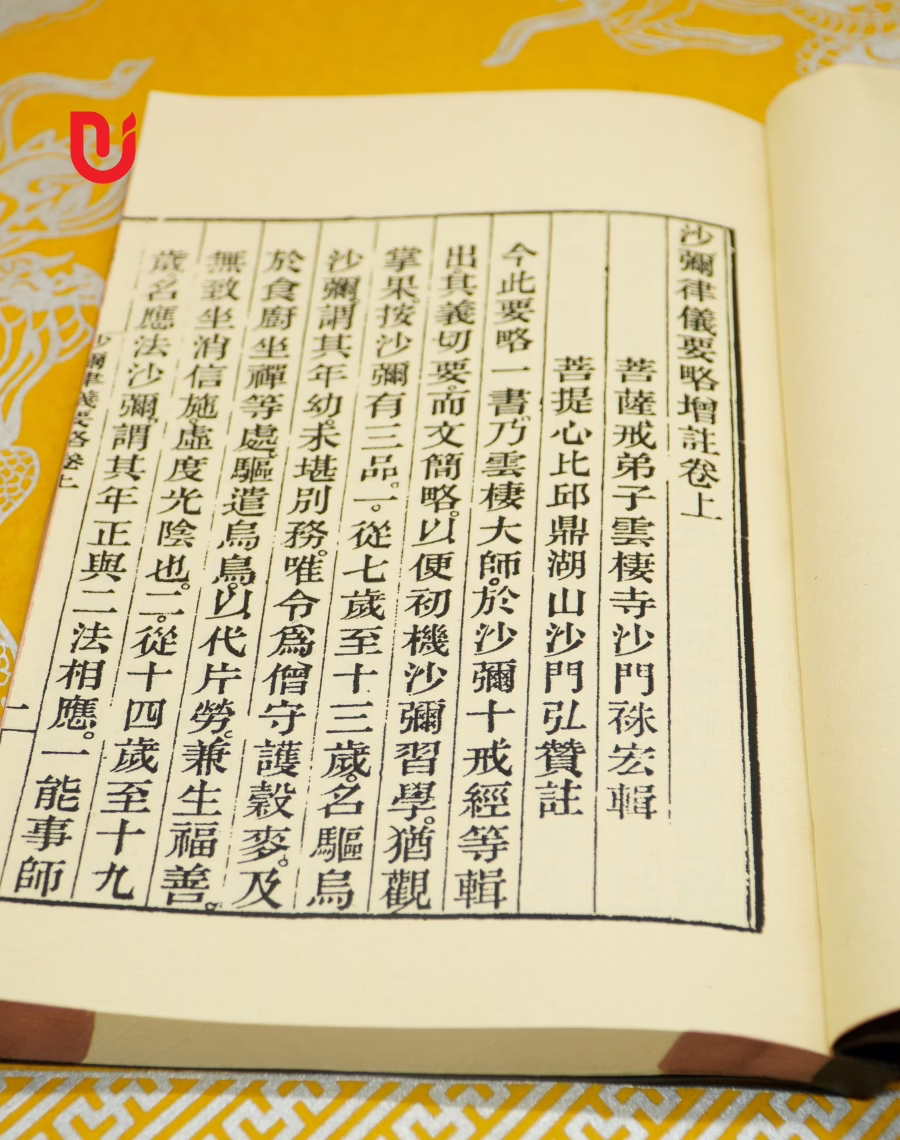 沙彌律儀要略增註卷上
菩薩戒弟子雲棲寺沙門袾宏輯
菩提心比邱鼎湖山沙門弘贊註
今此要略一書。乃雲棲大師。於沙彌十戒經等輯
出。其義切要。而文簡略。以便初機沙彌習學。猶觀
掌果。按沙彌有三品。一。從七歲至十三歲。名驅烏
沙彌。謂其年幼。未堪別務。唯令為僧守護穀麥。及
於食廚坐禪等處。驅遣烏鳥。以代片勞。兼生福善。
無致坐消信施。虛度光陰也。二。從十四歲至十九
歲。名應法沙彌。謂其年正與二法相應。一能事師
沙彌律儀要略卷上
一